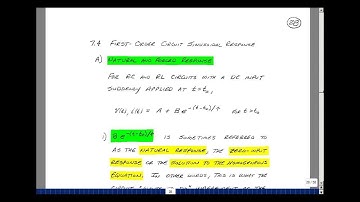 28
7.4 FIRST-ORDER CIRCUIT SINUSOIDAL RESPONSE
A) NATURAL AND FORCED RESPONSE
FOR RC AND RL CIRCUITS WITH A DC INPUT
SUDDENLY APPLIED AT t=t₀,
V(t), i(t) = A + Be^-(t-t₀)/τ FOR t>t₀
i) Be^-(t-t₀)/τ IS SOMETIMES REFERRED TO
AS THE NATURAL RESPONSE, THE ZERO-INPUT
RESPONSE OR THE SOLUTION TO THE HOMOGENEOUS
EQUATION. IN OTHER WORDS, THIS IS WHAT THE